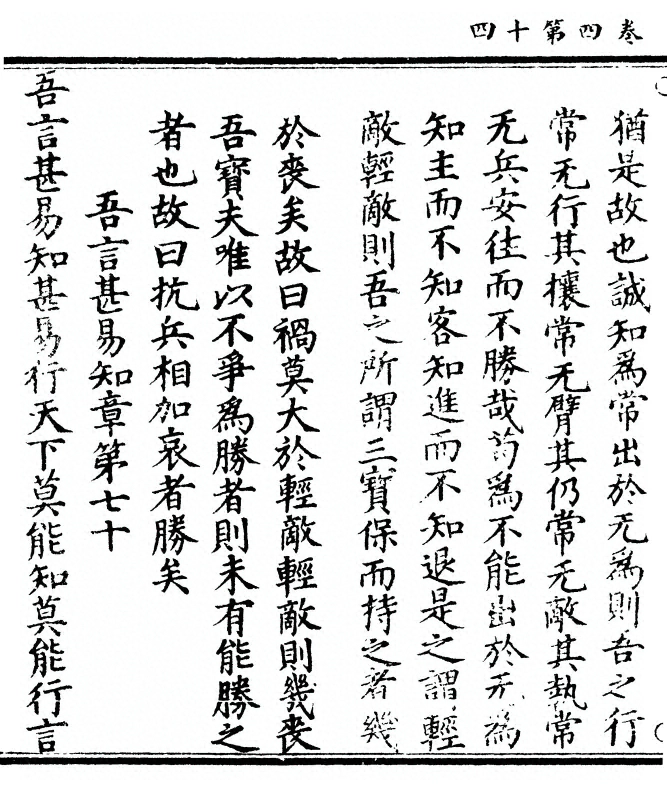 卷四第十四
猶是故也誠知為常出於无為則吾之行
常无行其攘常无臂其仍常无敵其執常
无兵安往而不勝哉苟為不能出於无為
知主而不知客知進而不知退是之謂輕
敵輕敵則吾之所謂三寶保而持之者幾
於喪矣故曰禍莫大於輕敵輕敵則幾喪
吾寶夫唯以不爭為勝者則未有能勝之
者也故曰抗兵相加哀者勝矣
吾言甚易知章第七十
吾言甚易知甚易行天下莫能知莫能行言